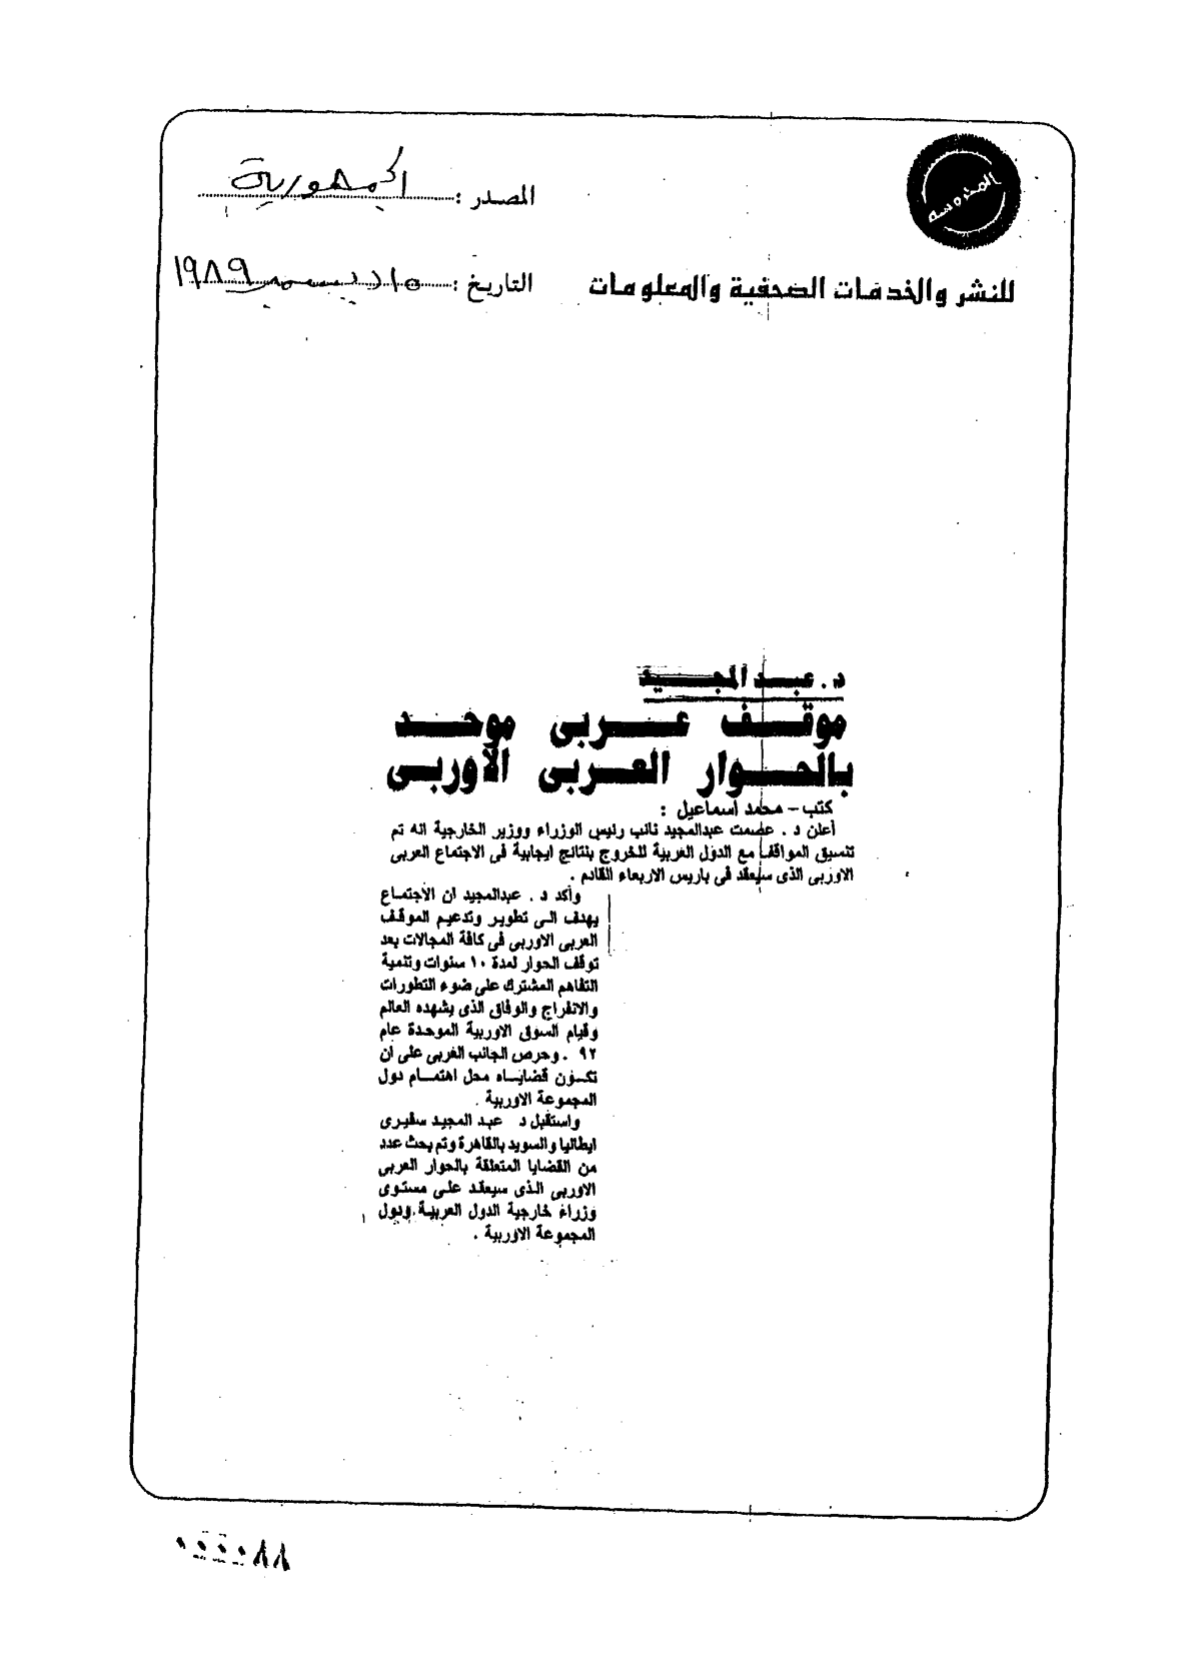 المحروسة
المصدر : الجمهورية
للنشر والخدمات الصحفية والمعلومات
التاريخ : ١٥ ديسمبر ١٩٨٩
د . عبد المجيد
موقف عربى موحد
بالحوار العربى الأوربى
كتب - محمد اسماعيل :
أعلن د . عصمت عبدالمجيد نائب رئيس الوزراء ووزير الخارجية انه تم
تنسيق المواقف مع الدول العربية للخروج بنتائج ايجابية فى الاجتماع العربى
الاوربى الذى سيعقد فى باريس الاربعاء القادم .
وأكد د . عبدالمجيد ان الاجتماع
يهدف الى تطوير وتدعيم الموقف
العربى الاوربى فى كافة المجالات بعد
توقف الحوار لمدة ١٠ سنوات وتنمية
التفاهم المشترك على ضوء التطورات
والانفراج والوفاق الذى يشهده العالم
وقيام السوق الاوربية الموحدة عام
٩٢ . وحرص الجانب العربى على ان
تكون قضاياه محل اهتمام دول
المجموعة الاوربية .
واستقبل د عبد المجيد سفيرى
ايطاليا والسويد بالقاهرة وتم بحث عدد
من القضايا المتعلقة بالحوار العربى
الاوربى الذى سيعقد على مستوى
وزراء خارجية الدول العربية ودول
المجموعة الاوربية .